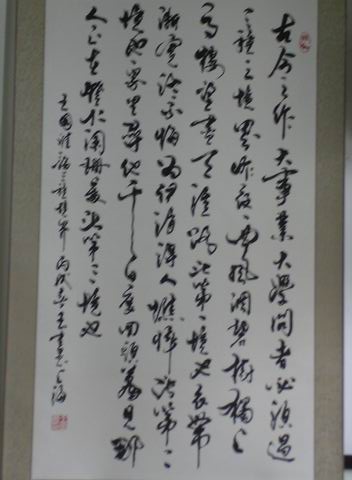 古今之作大事業大學問者必須過
三種之境界昨夜西風凋碧樹獨上
高樓望盡天涯路此第一境也衣帶
漸寬終不悔為伊消得人憔悴此第二
境也眾里尋他千百度回頭驀見那
人正在燈火闌珊處此第三境也
王國維語三種境界丙戌